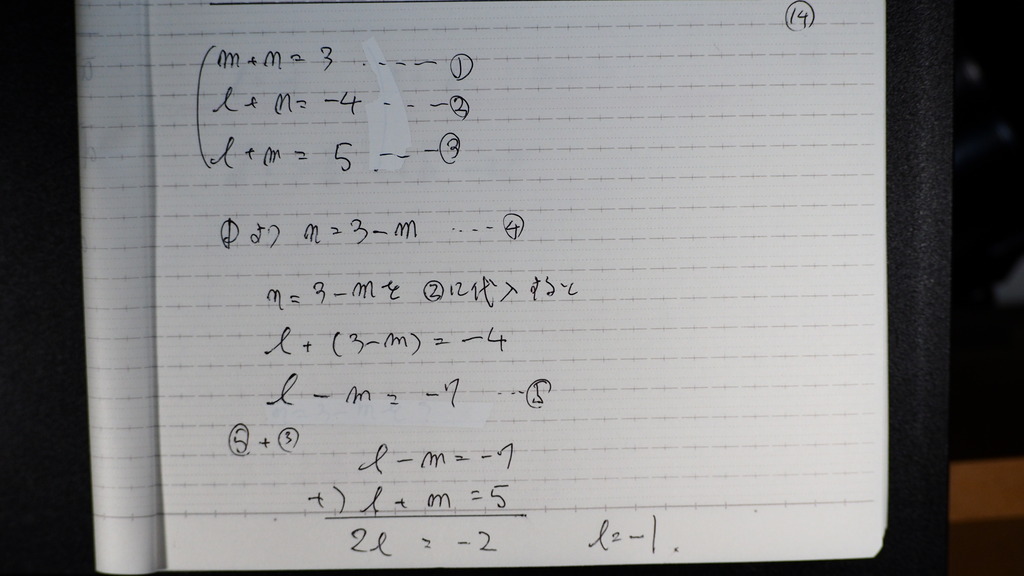 ⑭
m+n=3 ‥‥‥ ①
l+n=-4 ‥‥‥ ②
l+m= 5 ‥‥‥ ③
①より n=3-m ‥‥‥ ④
n=3-mを ②に代入すると
l+(3-m)=-4
l-m=-7 ‥‥⑤
⑤+③
l-m=-7
+) l+m=5
2l = -2 l=-1.